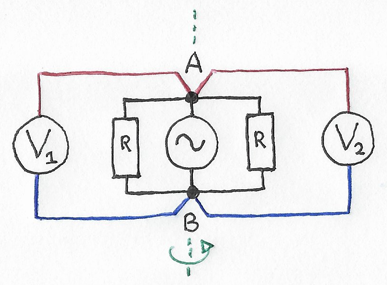 A
V1
R
R
V2
B